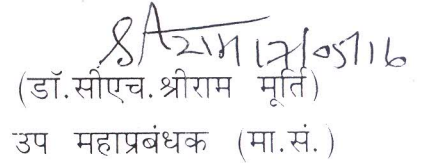 17/05/16
(डॉ.सीएच.श्रीराम मूर्ति)
उप महाप्रबंधक (मा.सं.)